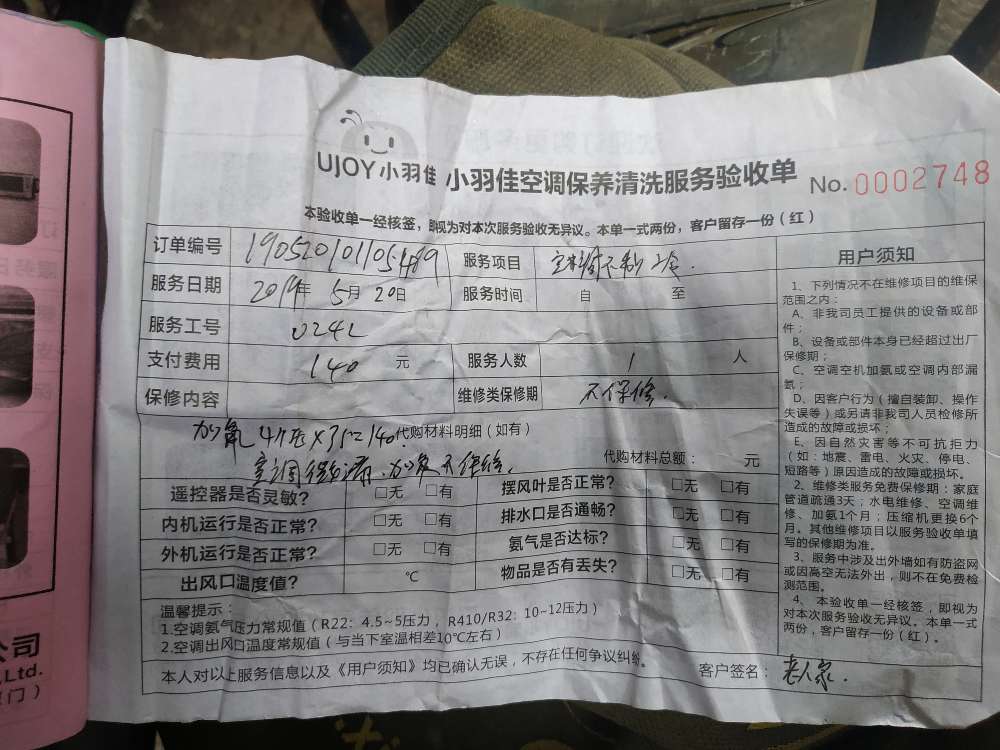 UJOY小羽佳 小羽佳空调保养清洗服务验收单 No. 0002748
本验收单一经核签，即视为对本次服务验收无异议。本单一式两份，客户留存一份（红）
订单编号 190520101105489 服务项目 空调不制冷.
服务日期 2019年 5月 20日 服务时间 自 至
服务工号 0242
支付费用 140 元 服务人数 1 人
保修内容 维修类保修期 不保修.
加氟4个压×35=140 代购材料明细（如有）
代购材料总额： 元
空调 漏, 加氟不保修.
遥控器是否灵敏？ □无 □有 摆风叶是否正常？ □无 □有
内机运行是否正常？ □无 □有 排水口是否通畅？ □无 □有
外机运行是否正常？ □无 □有 氨气是否达标？ □无 □有
出风口温度值？ ℃ 物品是否有丢失？ □无 □有
温馨提示：
1.空调氨气压力常规值（R22：4.5~5压力，R410/R32：10~12压力）
2.空调出风口温度常规值（与当下室温相差10℃左右）
本人对以上服务信息以及《用户须知》均已确认无误，不存在任何争议纠纷。 客户签名：老人家.
用户须知
1、下列情况不在维修项目的维保
范围之内：
A、非我司员工提供的设备或部
件；
B、设备或部件本身已经超过出厂
保修期；
C、空调空机加氨或空调内部漏
氨；
D、因客户行为（擅自装卸、操作
失误等）或另请非我司人员检修所
造成的故障或损坏；
E、因自然灾害等不可抗拒力
（如：地震、雷电、火灾、停电、
短路等）原因造成的故障或损坏。
2、维修类服务免费保修期：家庭
管道疏通3天；水电维修、空调维
修、加氨1个月；压缩机更换6个
月。其他维修项目以服务验收单填
写的保修期为准。
3、服务中涉及出外墙如有防盗网
或因高空无法外出，则不在免费检
测范围。
4、本验收单一经核签，即视为
对本次服务验收无异议。本单一式
两份，客户留存一份（红）。
公司
,Ltd.
门）